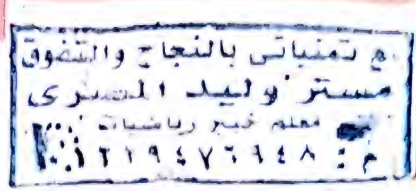 مع تمنياتى بالنجاح والتفوق
مستر وليد المصرى
معلم خبير رياضيات
م :